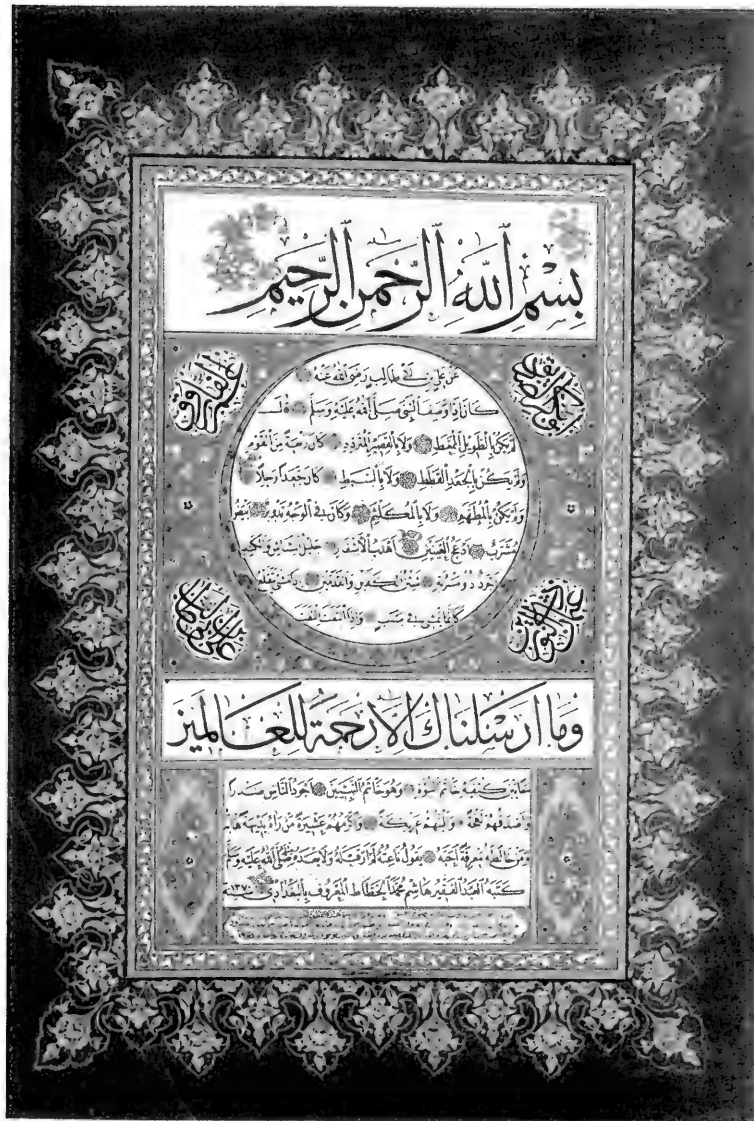 بِسْمِ ٱللَّهِ ٱلرَّحْمَنِ ٱلرَّحِيمِ
عَنْ عَلِيِّ بْنِ أَبِي طَالِبٍ رَضِيَ اللهُ عَنْهُ
كَانَ إِذَا وَصَفَ النَّبِيَّ صَلَّى اللهُ عَلَيْهِ وَسَلَّمَ قَالَ
لَمْ يَكُنْ بِالطَّوِيلِ الْمُمَّغِطِ وَلَا بِالْقَصِيرِ الْمُتَرَدِّدِ كَانَ رَبْعَةً مِنَ الْقَوْمِ
وَلَمْ يَكُنْ بِالْجَعْدِ الْقَطَطِ وَلَا بِالسَّبِطِ كَانَ جَعْدًا رَجِلًا
وَلَمْ يَكُنْ بِالْمُطَهَّمِ وَلَا بِالْمُكَلْثَمِ وَكَانَ فِي الْوَجْهِ تَدْوِيرٌ أَبْيَضُ
مُشْرَبٌ أَدْعَجُ الْعَيْنَيْنِ أَهْدَبُ الْأَشْفَارِ جَلِيلُ الْمُشَاشِ وَالْكَتَدِ
أَجْرَدُ ذُو مَسْرُبَةٍ شَثْنُ الْكَفَّيْنِ وَالْقَدَمَيْنِ إِذَا مَشَى تَقَلَّعَ
كَأَنَّمَا يَمْشِي فِي صَبَبٍ وَإِذَا الْتَفَتَ الْتَفَتَ
وَمَا أَرْسَلْنَاكَ إِلَّا رَحْمَةً لِلْعَالَمِينَ
مَعًا بَيْنَ كَتِفَيْهِ خَاتَمُ النُّبُوَّةِ وَهُوَ خَاتَمُ النَّبِيِّينَ أَجْوَدُ النَّاسِ صَدْرًا
وَأَصْدَقُهُمْ لَهْجَةً وَأَلْيَنُهُمْ عَرِيكَةً وَأَكْرَمُهُمْ عَشِيرَةً مَنْ رَآهُ بَدِيهَةً هَابَهُ
وَمَنْ خَالَطَهُ مَعْرِفَةً أَحَبَّهُ يَقُولُ نَاعِتُهُ لَمْ أَرَ قَبْلَهُ وَلَا بَعْدَهُ مِثْلَهُ صَلَّى اللهُ عَلَيْهِ وَسَلَّمَ
كَتَبَهُ الْعَبْدُ الْفَقِيرُ هَاشِم مُحَمَّد الْخَطَّاط الْمَعْرُوف بِالْبَغْدَادِي ١٣٧٠